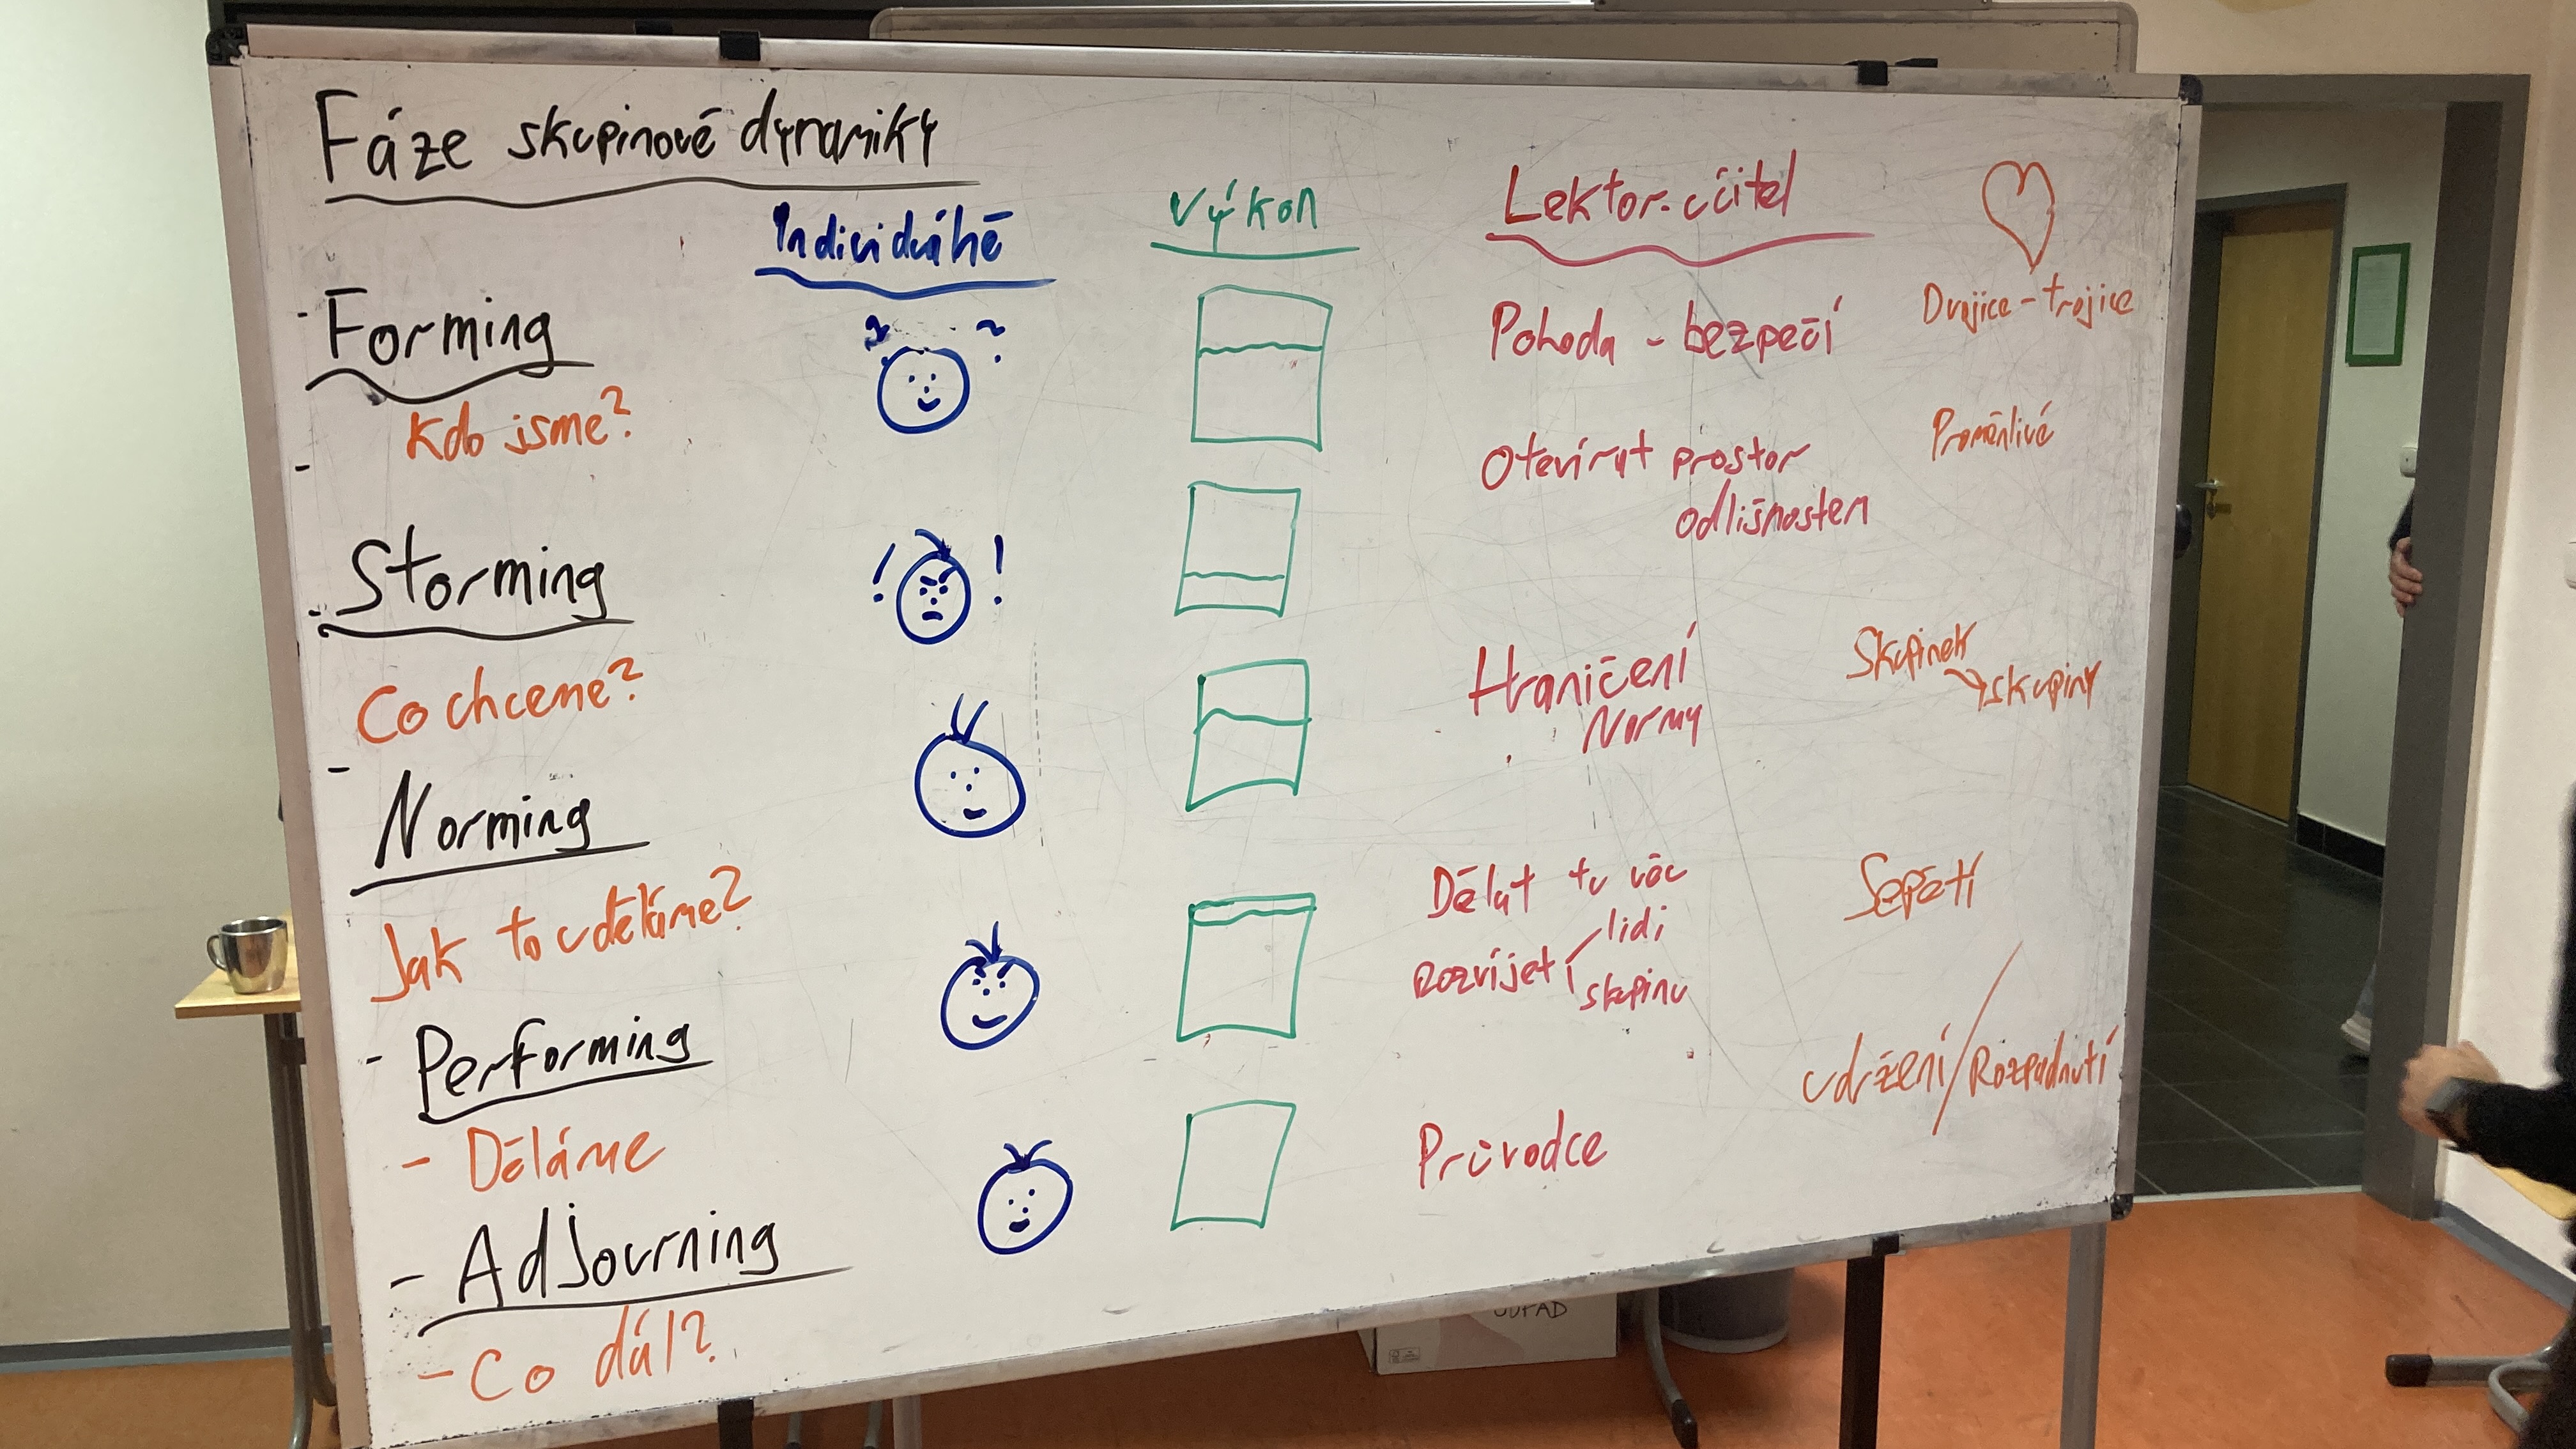 Fáze skupinové dynamiky
Individuálně
Výkon
Lektor-učitel
Forming
? ?
Pohoda - bezpečí
Dvojice - trojice
Kdo jsme?
Otevírat prostor
odlišnostem
Proměnlivé
Storming
! !
Co chceme?
Hraničení
Normy
Skupinek
→ skupiny
Norming
Jak to uděláme?
Dělat tu věc
rozvíjet lidi
skupinu
Sepětí
Performing
- Děláme
udržení / Rozpadnutí
- Adjourning
Průvodce
- Co dál?
ODPAD